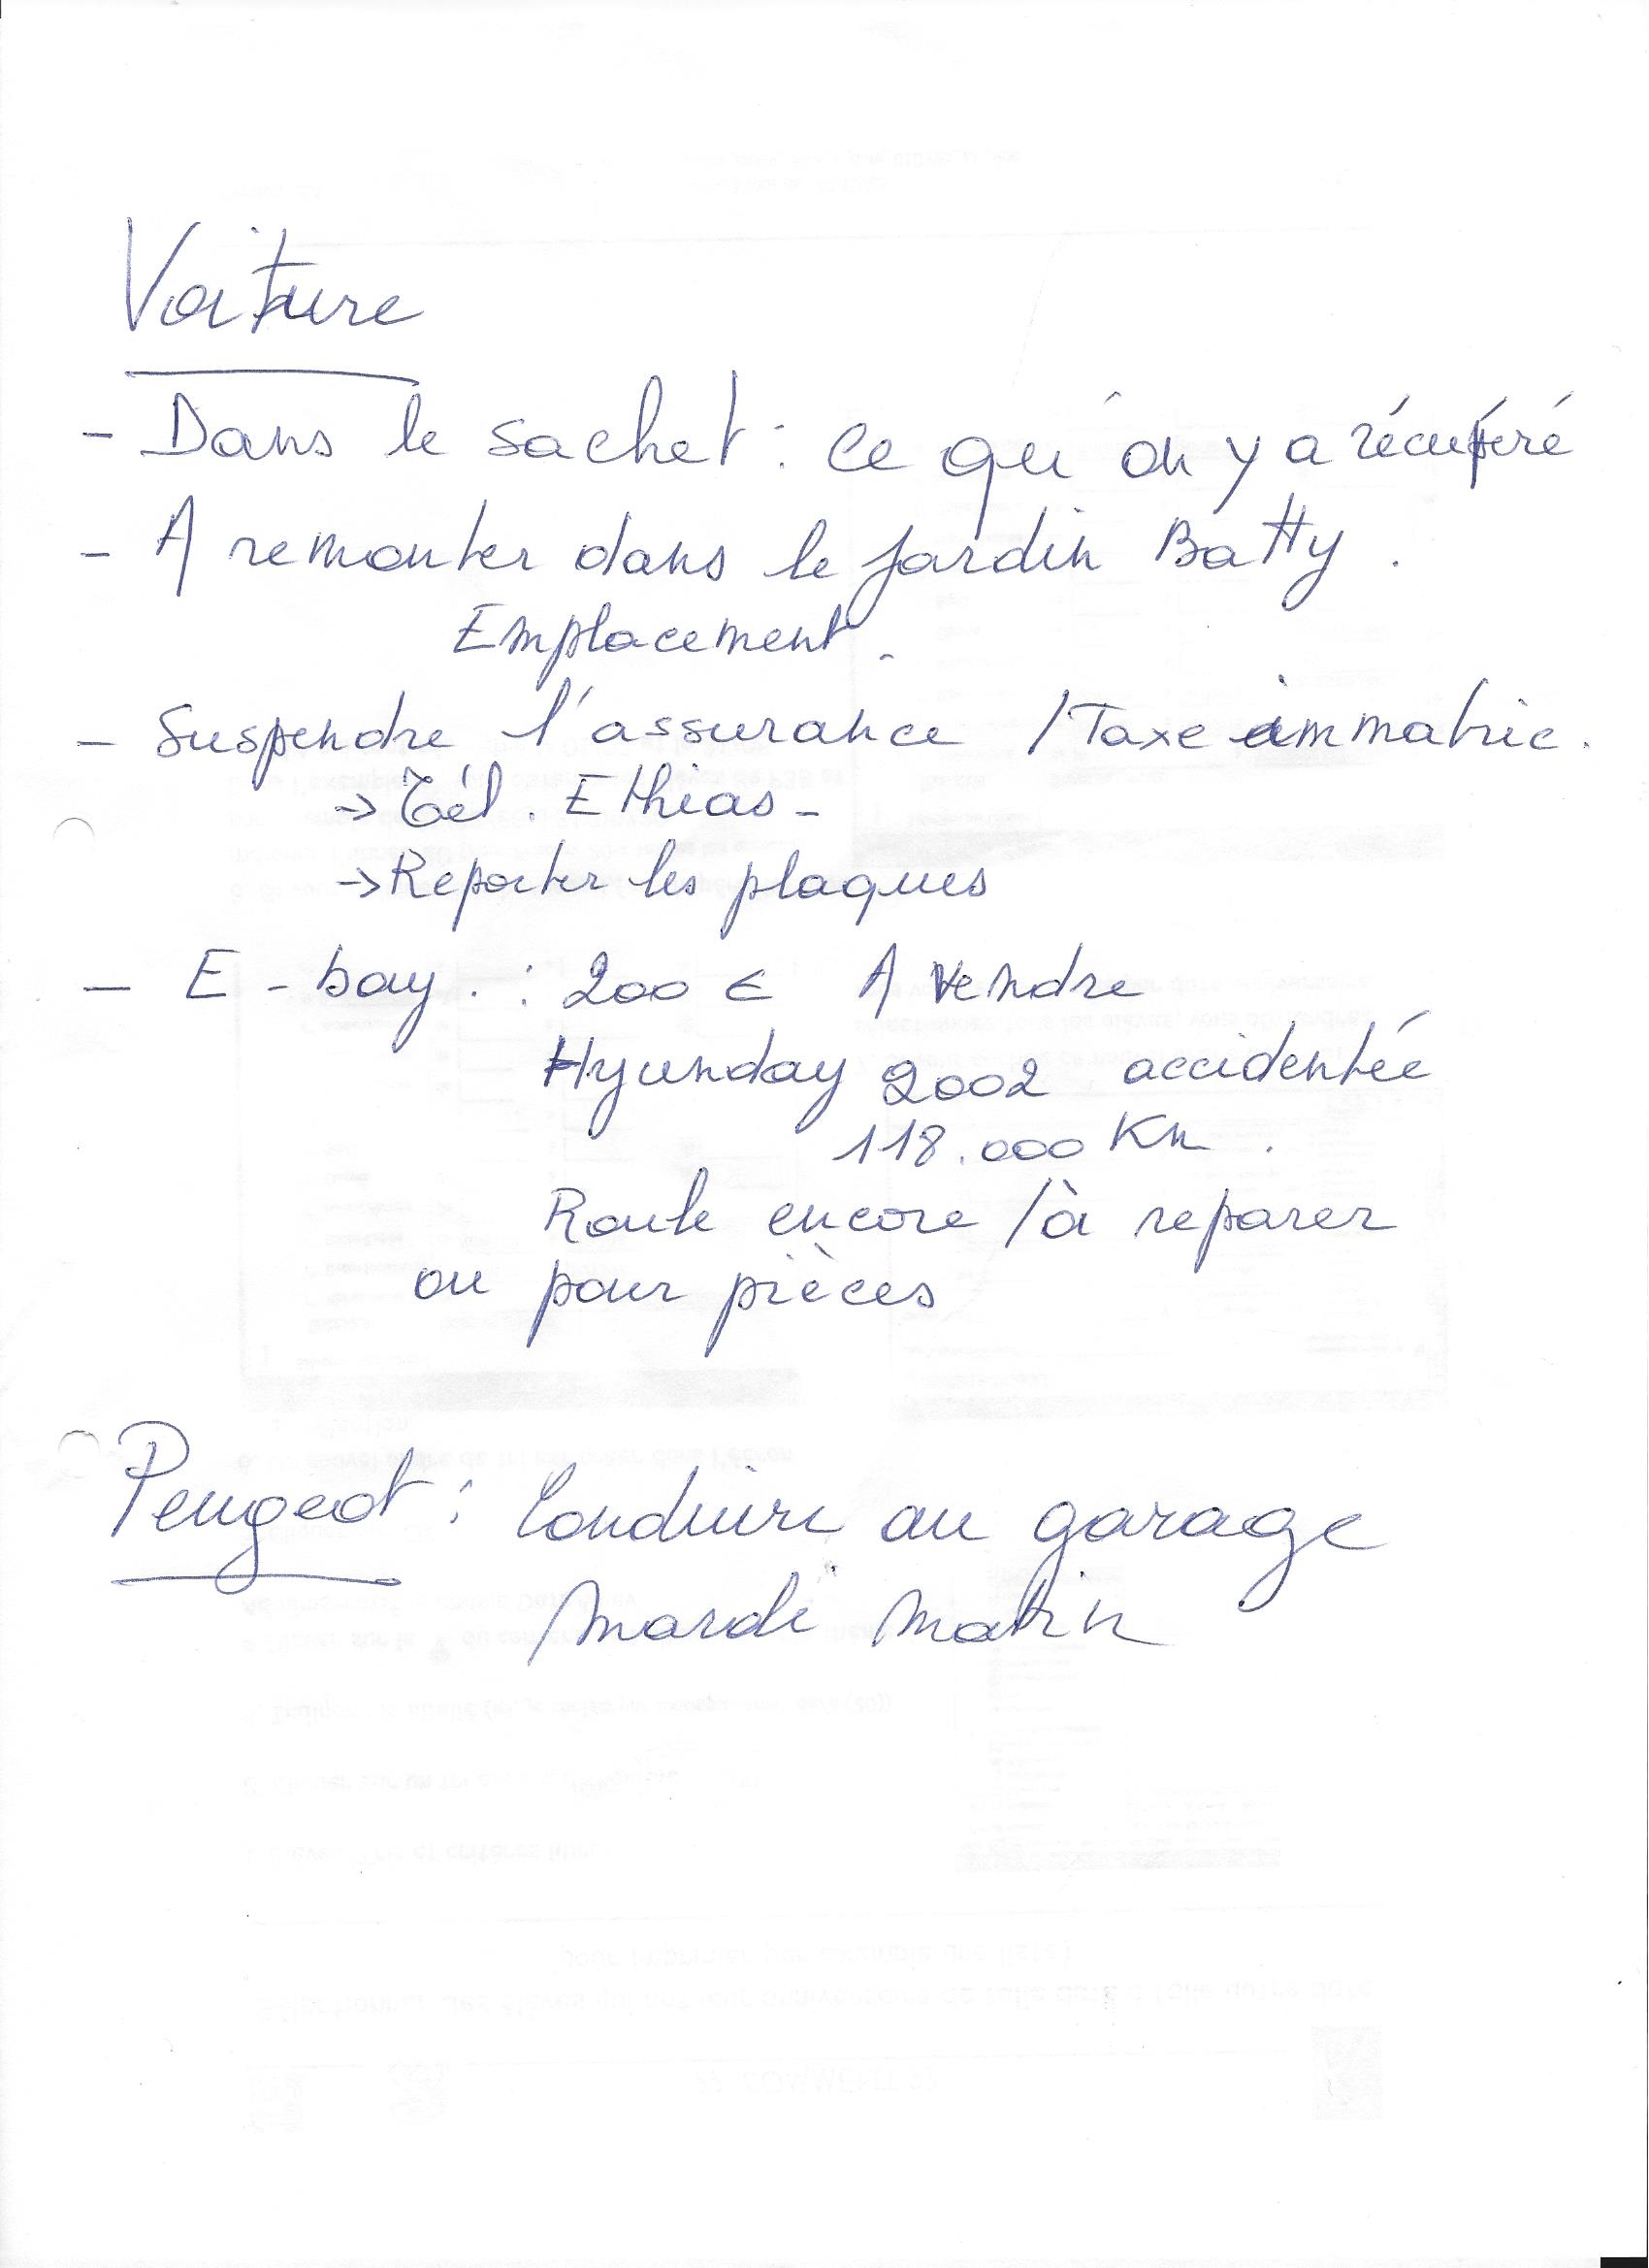 Voiture
- Dans le sachet : ce qu'on y a récupéré
- A remonter dans le jardin Batty.
Emplacement.
- Suspendre l'assurance / Taxe immatric.
→ Tél. Ethias -
→ Reporter les plaques
- E-bay. : 200 € A vendre
Hyunday 2002 accidentée
118.000 Km.
Roule encore / à reparer
ou pour pièces
Peugeot : Conduire au garage
mardi matin